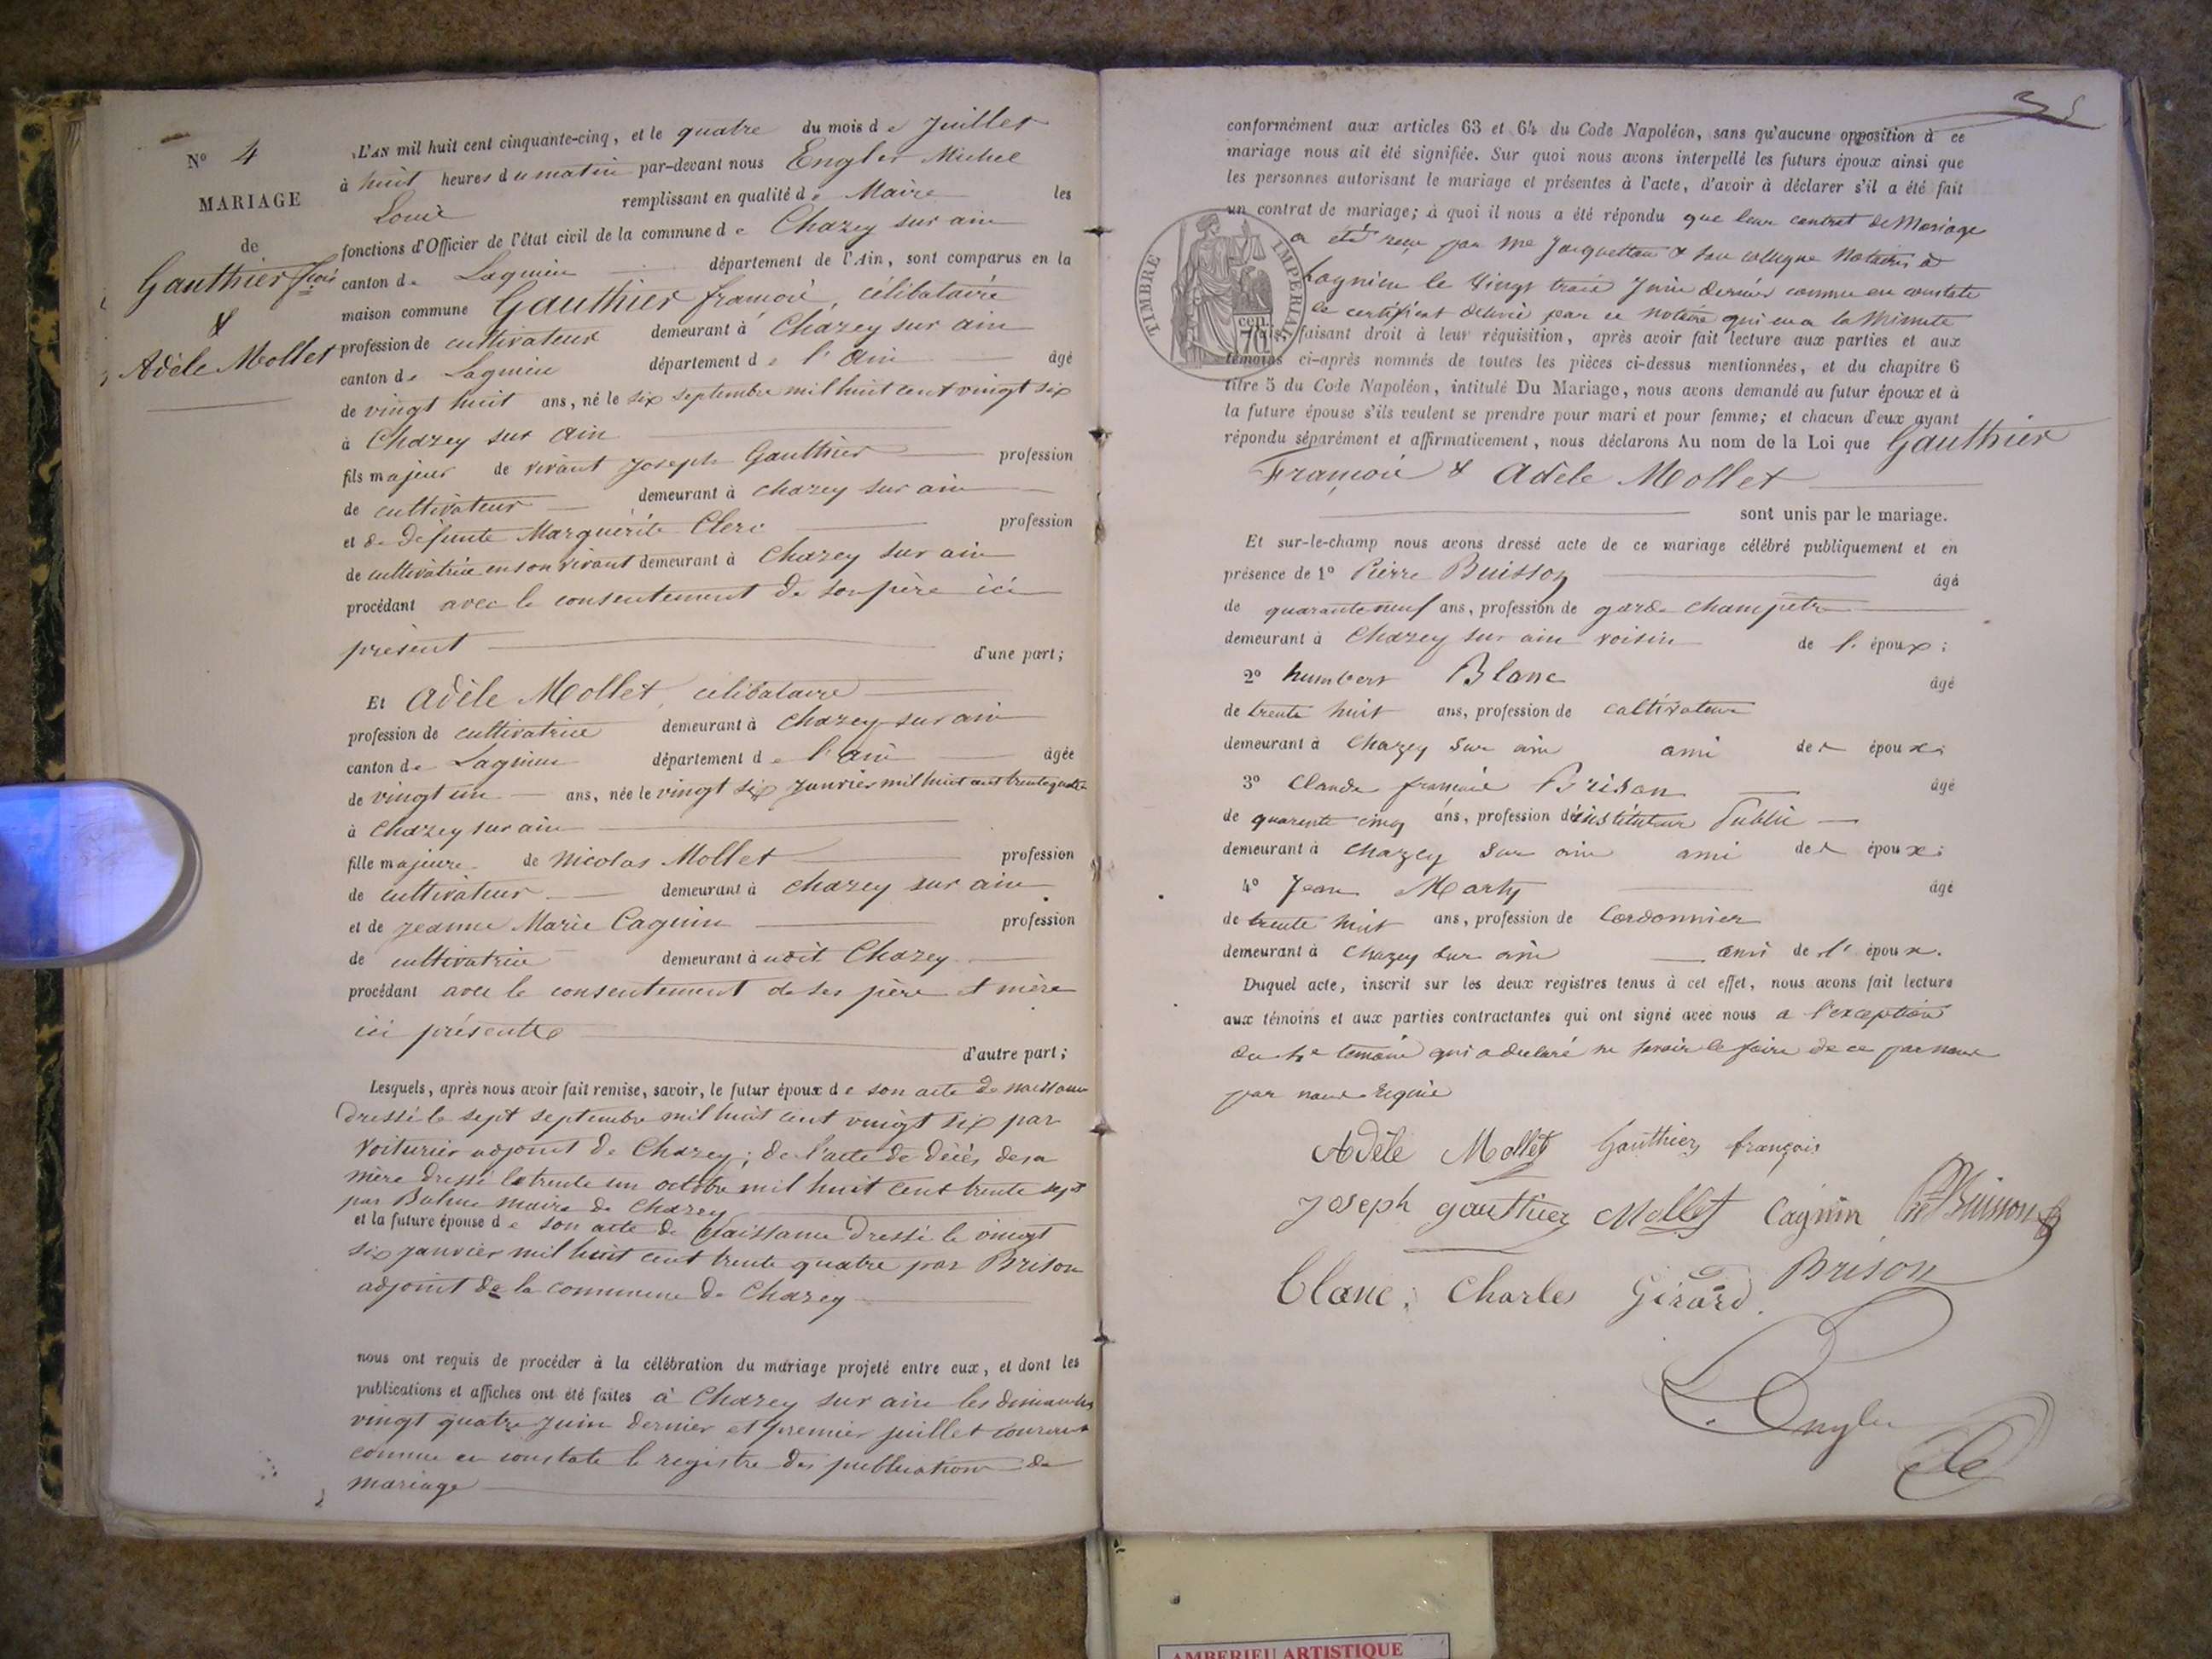 N° 4
MARIAGE
de
Gauthier fçois
&
Adèle Mollet
L'AN mil huit cent cinquante-cinq, et le quatre du mois de Juillet
à huit heures du matin par-devant nous Engler Michel
Louis remplissant en qualité de Maire les
fonctions d'Officier de l'état civil de la commune de Chazey sur ain
canton de Lagnieu département de l'Ain, sont comparus en la
maison commune Gauthier françois, célibataire
profession de cultivateur demeurant à Chazey sur ain
canton de Lagnieu département de l'Ain âgé
de vingt huit ans, né le six septembre mil huit cent vingt six
à Chazey sur Ain
fils majeur de vivant Joseph Gauthier profession
de cultivateur demeurant à chazey sur ain
et de défunte Marguerite Clerc profession
de cultivatrice en son vivant demeurant à Chazey sur ain
procédant avec le consentement de son père ici
présent d'une part;
Et Adèle Mollet, célibataire
profession de cultivatrice demeurant à Chazey sur ain
canton de Lagnieu département de l'ain âgée
de vingt un ans, née le vingt six Janvier mil huit cent trente quatre
à Chazey sur ain
fille majeure de Nicolas Mollet profession
de cultivateur demeurant à chazey sur ain
et de Jeanne Marie Cagnin profession
de cultivatrice demeurant à udit Chazey
procédant avec le consentement de ses père et mère
ici présents d'autre part;
Lesquels, après nous avoir fait remise, savoir, le futur époux de son acte de naissance
dressé le sept septembre mil huit cent vingt six par
Voiturier adjoint de Chazey; de l'acte de décès de sa
mère dressé le trente un octobre mil huit cent trente sept
par maire de Chazey
et la future épouse de son acte de Naissance dressé le vingt
six janvier mil huit cent trente quatre par Brison
adjoint de la commune de Chazey
nous ont requis de procéder à la célébration du mariage projeté entre eux, et dont les
publications et affiches ont été faites à Chazey sur ain les dimanches
vingt quatre Juin dernier et premier juillet courant
comme en constate le registre des publications de
mariage
conformément aux articles 63 et 64 du Code Napoléon, sans qu'aucune opposition à ce
mariage nous ait été signifiée. Sur quoi nous avons interpellé les futurs époux ainsi que
les personnes autorisant le mariage et présentes à l'acte, d'avoir à déclarer s'il a été fait
un contrat de mariage; à quoi il nous a été répondu que leur contrat de Mariage
a été reçu par Me & son collègue Notaires à
Lagnieu le Vingt trois Juin dernier comme en constate
le certificat délivré par ce notaire qui en a la Minute
TIMBRE IMPERIAL
cen. 70
faisant droit à leur réquisition, après avoir fait lecture aux parties et aux
témoins ci-après nommés de toutes les pièces ci-dessus mentionnées, et du chapitre 6
titre 5 du Code Napoléon, intitulé Du Mariage, nous avons demandé au futur époux et à
la future épouse s'ils veulent se prendre pour mari et pour femme; et chacun d'eux ayant
répondu séparément et affirmativement, nous déclarons Au nom de la Loi que Gauthier
François & Adèle Mollet
sont unis par le mariage.
Et sur-le-champ nous avons dressé acte de ce mariage célébré publiquement et en
présence de 1° Pierre Buisson âgé
de quarante neuf ans, profession de garde champêtre
demeurant à Chazey sur ain voisin de l'époux;
2° humbert Blanc âgé
de trente huit ans, profession de cultivateur
demeurant à Chazey sur ain ami des époux;
3° Claude françois Brison âgé
de quarente cinq ans, profession d'instituteur Public
demeurant à chazey sur ain ami des époux;
4° Jean Marty âgé
de trente huit ans, profession de Cordonnier
demeurant à Chazey sur ain ami de l'époux.
Duquel acte, inscrit sur les deux registres tenus à cet effet, nous avons fait lecture
aux témoins et aux parties contractantes qui ont signé avec nous a l'exception
du 4e temoin qui a declaré ne savoir le faire de ce par nous
par nous requis
Adèle Mollet Gauthier françois
Joseph gauthier Mollet Cagnin Buisson
blanc; Charles Girard. Brison
L. Engler
AMBERIEU ARTISTIQUE